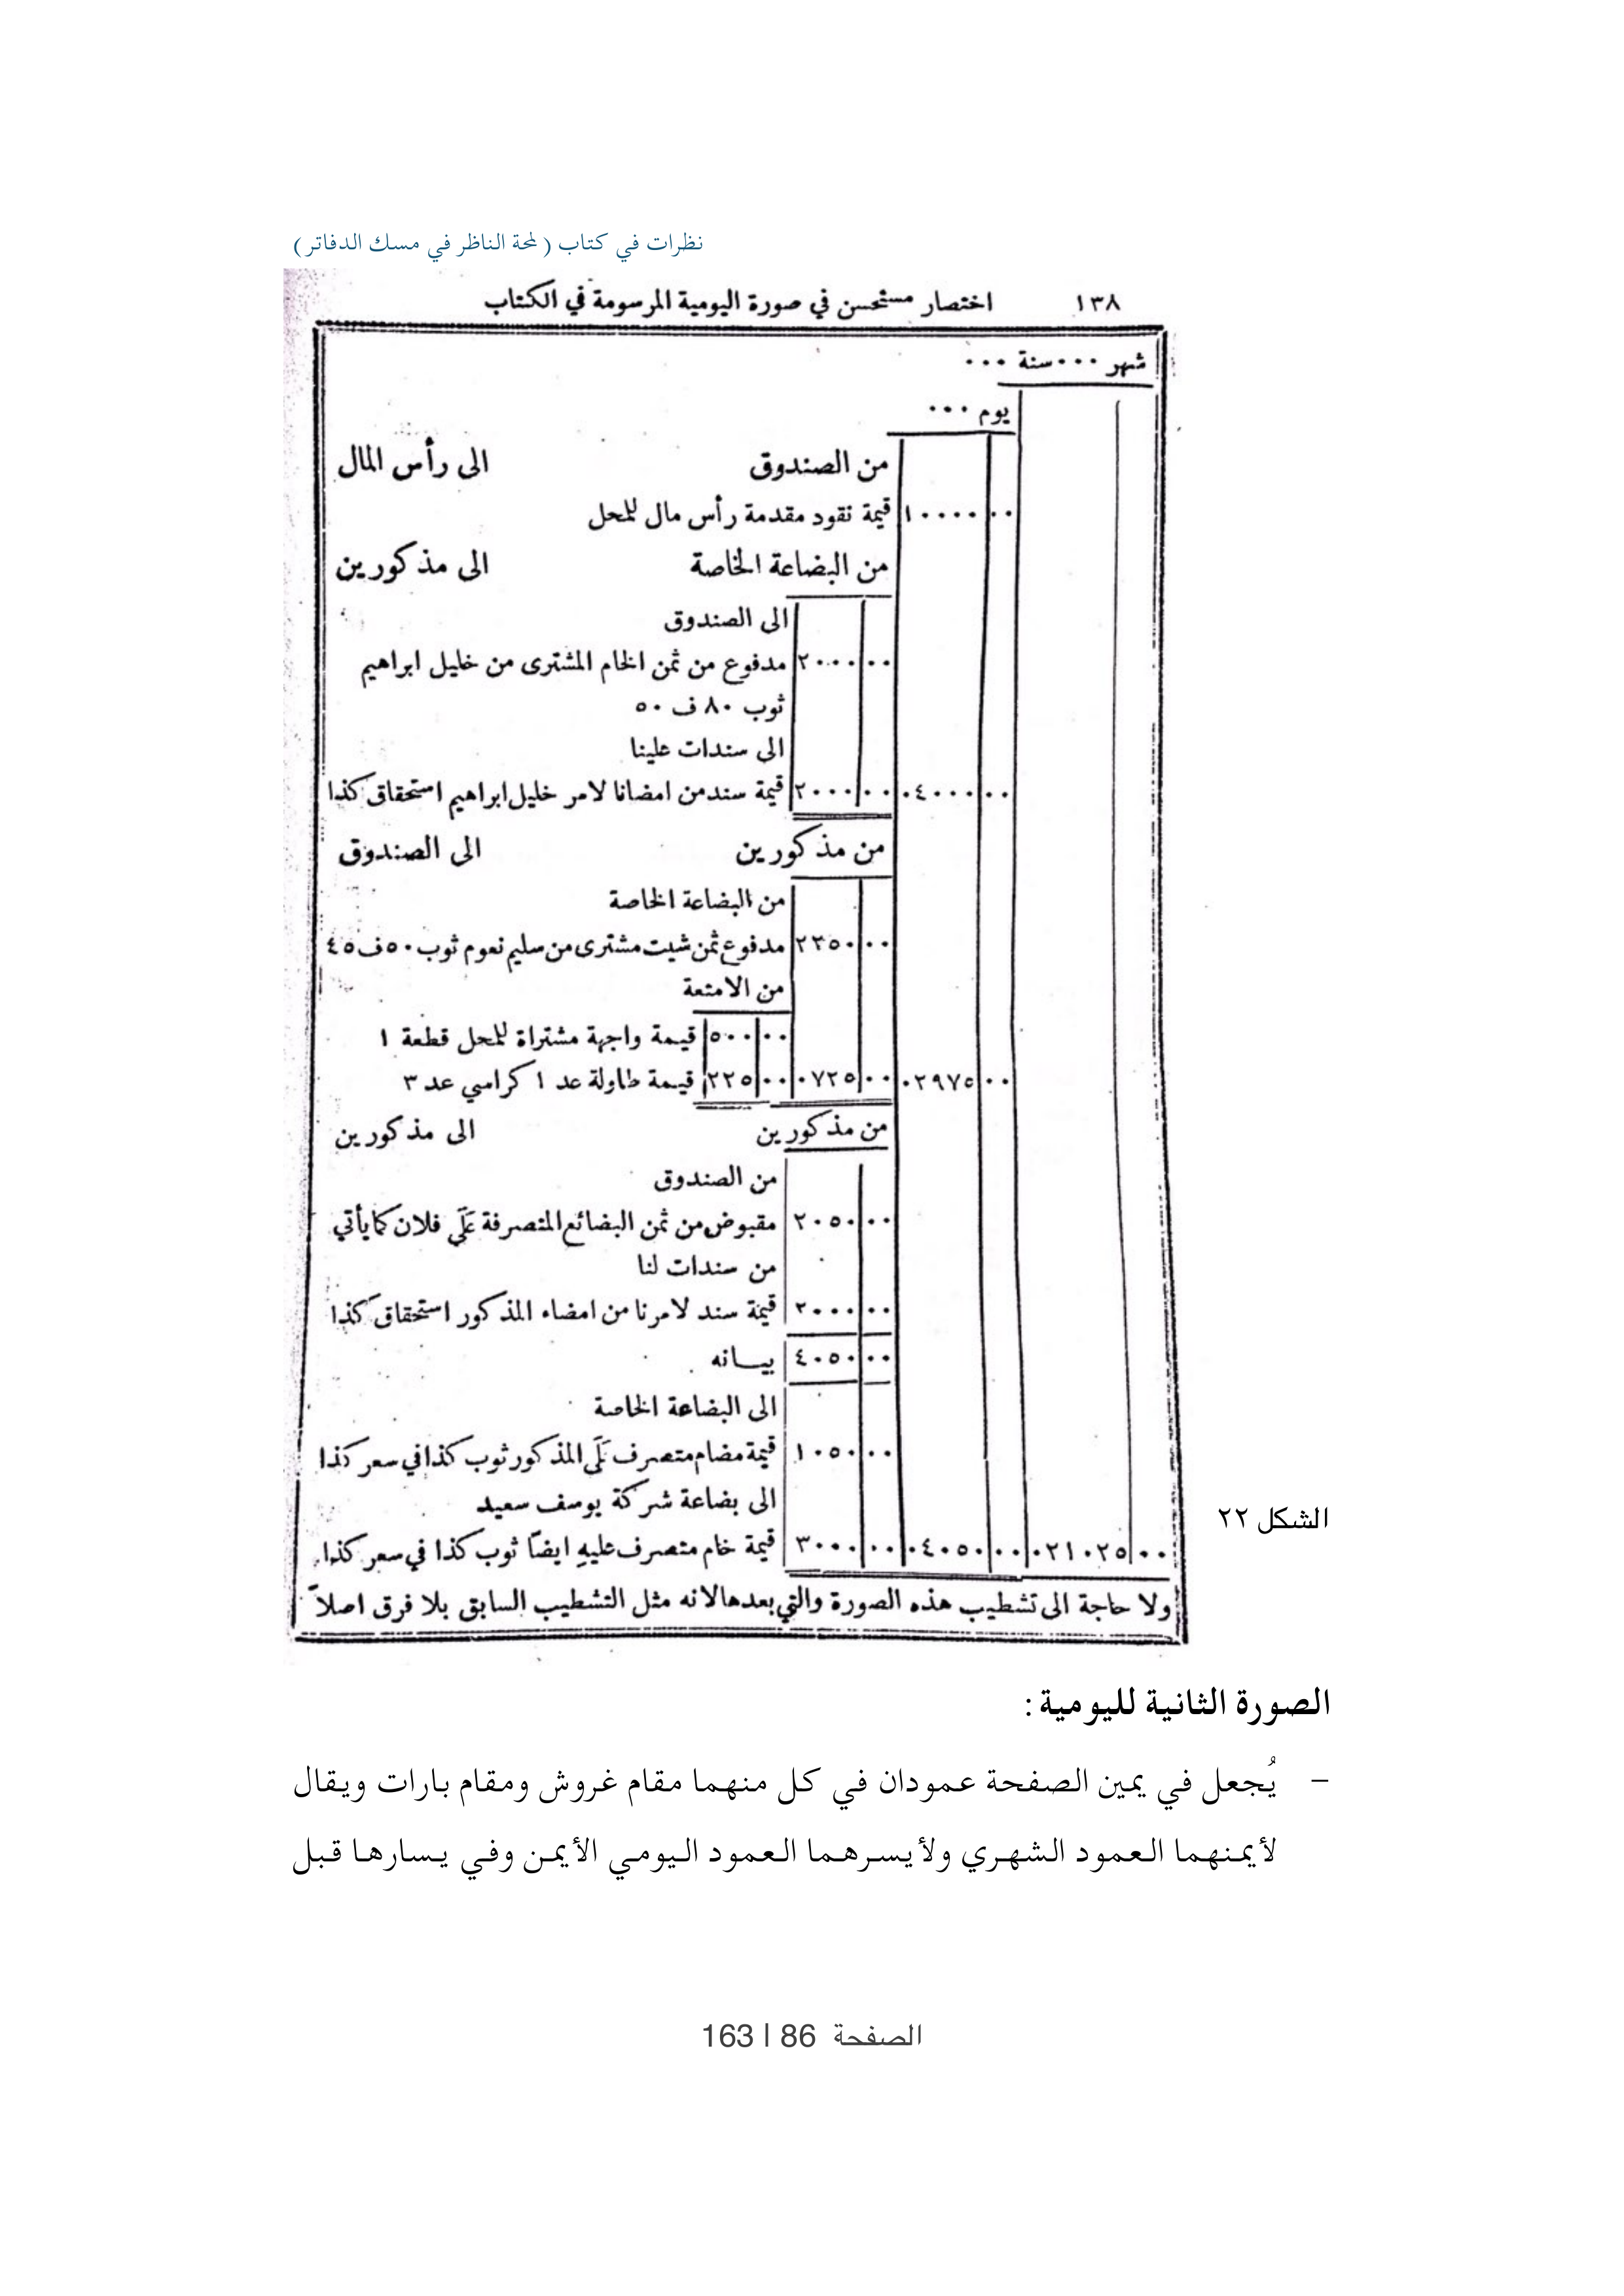 نظرات في كتاب (لمحة الناظر في مسك الدفاتر)
١٣٨ اختصار مستحسن في صورة اليومية المرسومة في الكتاب
شهر ٠٠٠ سنة ٠٠٠
يوم ٠٠٠
من الصندوق الى رأس المال
٠٠ ١٠٠٠٠ قيمة نقود مقدمة رأس مال للمحل
من البضاعة الخاصة الى مذكورين
الى الصندوق
٠٠ ٢٠٠٠ مدفوع من ثمن الخام المشترى من خليل ابراهيم
ثوب ٨٠ ف ٥٠
الى سندات علينا
٠٠ ٠٤٠٠٠ ٠٠ ٢٠٠٠ قيمة سند من امضانا لامر خليل ابراهيم استحقاق كذا
من مذكورين الى الصندوق
من البضاعة الخاصة
٠٠ ٢٢٥٠ مدفوع ثمن شيت مشترى من سليم نعوم ثوب ٥٠ ف ٤٥
من الامتعة
٠٠ ٥٠٠ قيمة واجهة مشتراة للمحل قطعة ١
٠٠ ٠٢٩٧٥ ٠٠ ٠٧٢٥ ٠٠ ٢٢٥ قيمة طاولة عد ١ كراسي عد ٣
من مذكورين الى مذكورين
من الصندوق
٠٠ ٢٠٥٠ مقبوض من ثمن البضائع المتصرفة على فلان كما يأتي
من سندات لنا
٠٠ ٢٠٠٠ قيمة سند لامرنا من امضاء المذكور استحقاق كذا
٠٠ ٤٠٥٠ بيانه
الى البضاعة الخاصة
٠٠ ١٠٥٠ قيمة متصرف المذكور ثوب كذا في سعر كذا
الى بضاعة شركة يوسف سعيد
٠٠ ٠٢١٠٢٥ ٠٠ ٠٤٠٥٠ ٠٠ ٣٠٠٠ قيمة خام متصرف عليه ايضاً ثوب كذا في سعر كذا
ولا حاجة الى تشطيب هذه الصورة والتي بعدها لانه مثل التشطيب السابق بلا فرق اصلاً
الشكل ٢٢
الصورة الثانية لليومية:
– يُجعل في يمين الصفحة عمودان في كل منهما مقام غروش ومقام بارات ويقال
لأيمنهما العمود الشهري ولأيسرهما العمود اليومي الأيمن وفي يسارها قبل
الصفحة 86 | 163